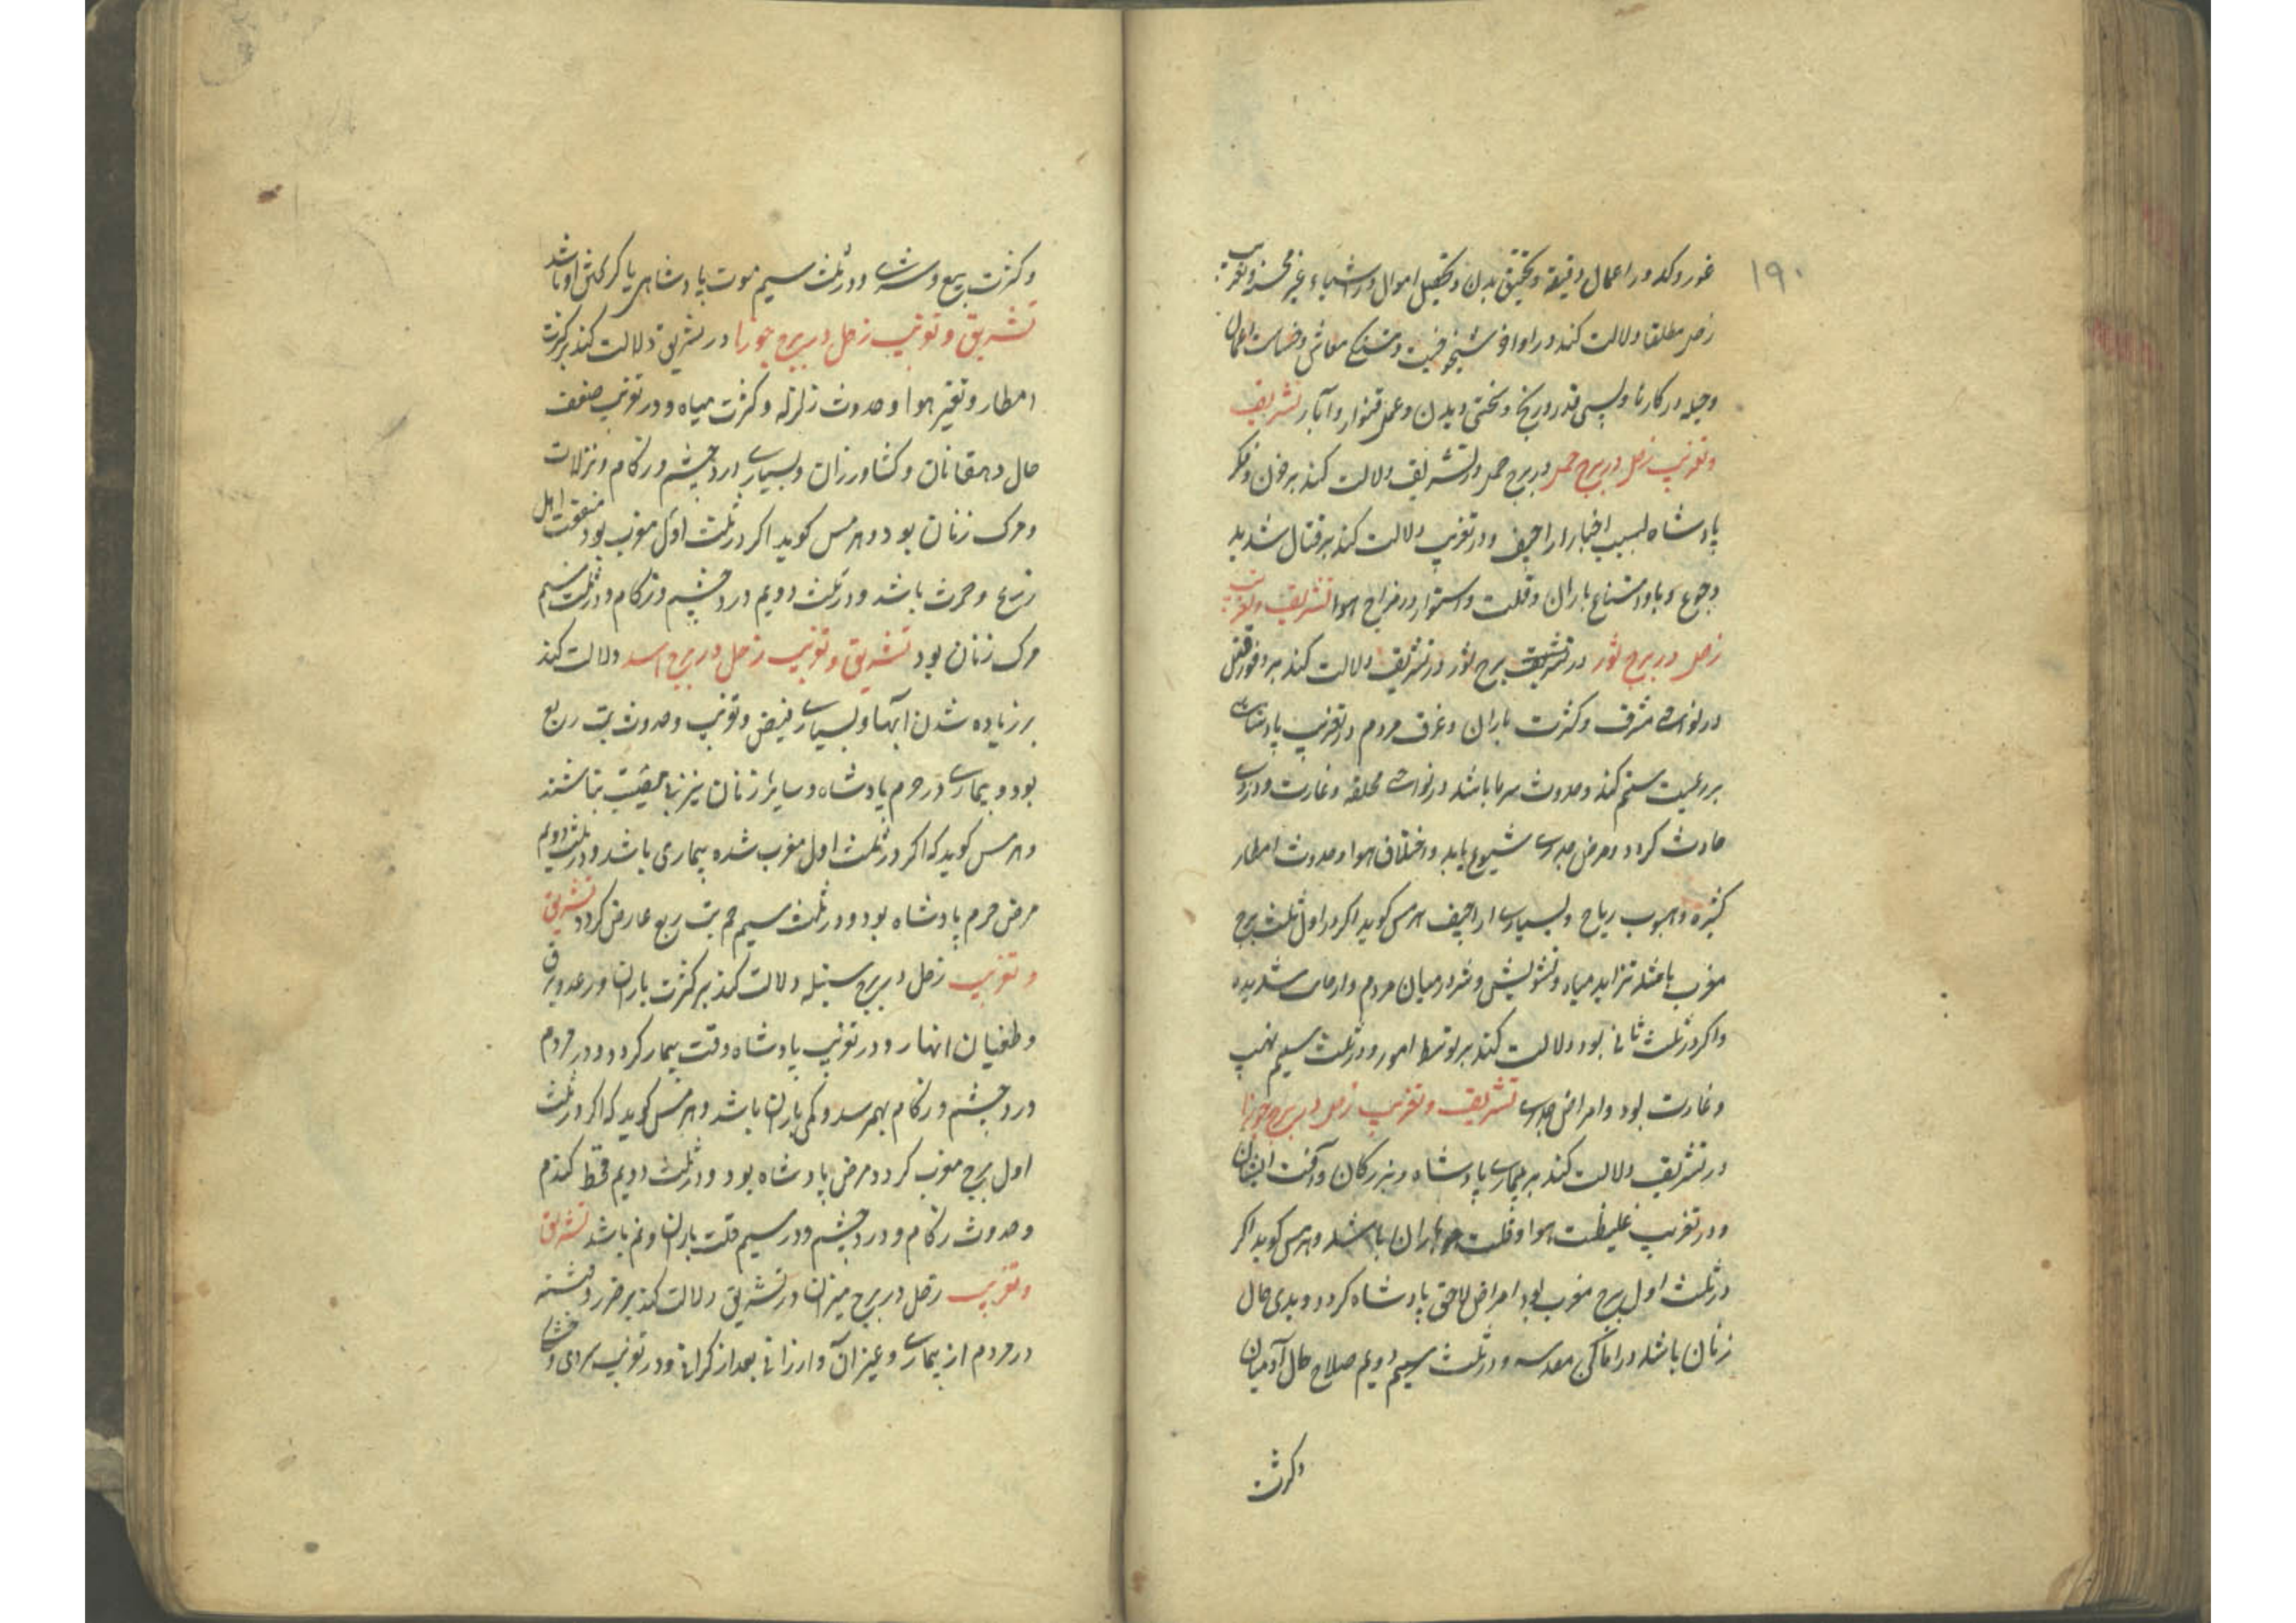 ۱۹۰
غور و کد در اعمال دقیقه و تحقیق بدن و تحصیل اموال و اشیاء غیر
زحل مطلقا دلالت کند در اواخر شیخوخیت و معاش و خساست اعمال
و حیله در کارها و پستی قدر و رنج و سختی دیدن و عمل قنوار و آبار تشریق
و تغریب زحل در برج حمل در برج حمل در تشریق دلالت کند بر خون و فکر
پادشاه بسبب اخبار اراجیف و در تغریب دلالت کند بر قتال شدید
و جوع و با و امتناع باران و قلت و استوار در مزاج هوا تشریق و تغریب
زحل در برج ثور در تشریق برج ثور در تشریق دلالت کند بر وفور فتن
در نواحی مشرق و کثرت باران و غرق مردم و در تغریب پادشاهی
بر رعیت ستم کند و حدوث سرما باشد در نواحی مختلفه و غارت و دزدی
حادث کردد و مرض جدری شیوع یابد و اختلاف هوا و حدوث امطار
کثیره و هبوب ریاح و بسیاری اراجیف هرمس کوید اکر در اول ثلث برج
مغرب باشد تزاید میاه و تشویش و شر در میان مردم و ارجاف شدیده
و اکر در ثلث ثانی بود دلالت کند بر توسط امور و در ثلث سیم نهب
و غارت بود و امراض جدری تشریق و تغریب زحل در برج جوزا
در تشریق دلالت کند بر بیماری پادشاه و بزرکان و آفت ایشان
و در تغریب غلیظت هوا و قلت باران باشد و هرمس کوید اکر
در ثلث اول برج مغرب بود امراض لاحق پادشاه کردد و بدی حال
زنان باشد در اماکن معدسه و در ثلث سیم دویم صلاح حال آدمیان
و کثرت
و کثرت ربیع و شری و در ثلث سیم موت پادشاهی یا کرکش او باشد
تشریق و تغریب زحل در برج جوزا در تشریق دلالت کند بر کثرت
امطار و تغیر هوا و حدوث زلزله و کثرت میاه و در تغریب ضعف
حال دهقانان و کشاورزان و بسیاری درد چشم و زکام و نزلات
و مرک زنان بود و هرمس کوید اکر در ثلث اول مغرب بود منفعت اهل
زرع و حرث باشد و در ثلث دویم درد چشم و زکام و در ثلث سیم
مرک زنان بود تشریق و تغریب زحل در برج اسد دلالت کند
بر زیاده شدن آبها و بسیاری فیض و تغریب و حدوث تب ربع
بود و بیماری در حرم پادشاه و سایر زنان نیز باشند
و هرمس کوید که اکر در ثلث اول مغرب شده بیماری باشد و در ثلث دویم
مرض حرم پادشاه بود و در ثلث سیم هم تب ربع عارض کردد تشریق
و تغریب زحل در برج سنبله دلالت کند بر کثرت باران و رعد و برق
و طغیان انهار و در تغریب پادشاه وقت بیمار کردد و در مردم
درد چشم و زکام بهم رسد و کمی باران باشد و هرمس کوید که اکر در ثلث
اول برج مغرب کردد مرض پادشاه بود و در ثلث دویم قحط کندم
و حدوث زکام و درد چشم و در سیم قلت باران و نم باشد تشریق
و تغریب زحل در برج میزان در تشریق دلالت کند بر ضرر و فتنه
در مردم از بیماری و غیر آن و ارزانی بعد از کرانی و در تغریب سردی و خشکی